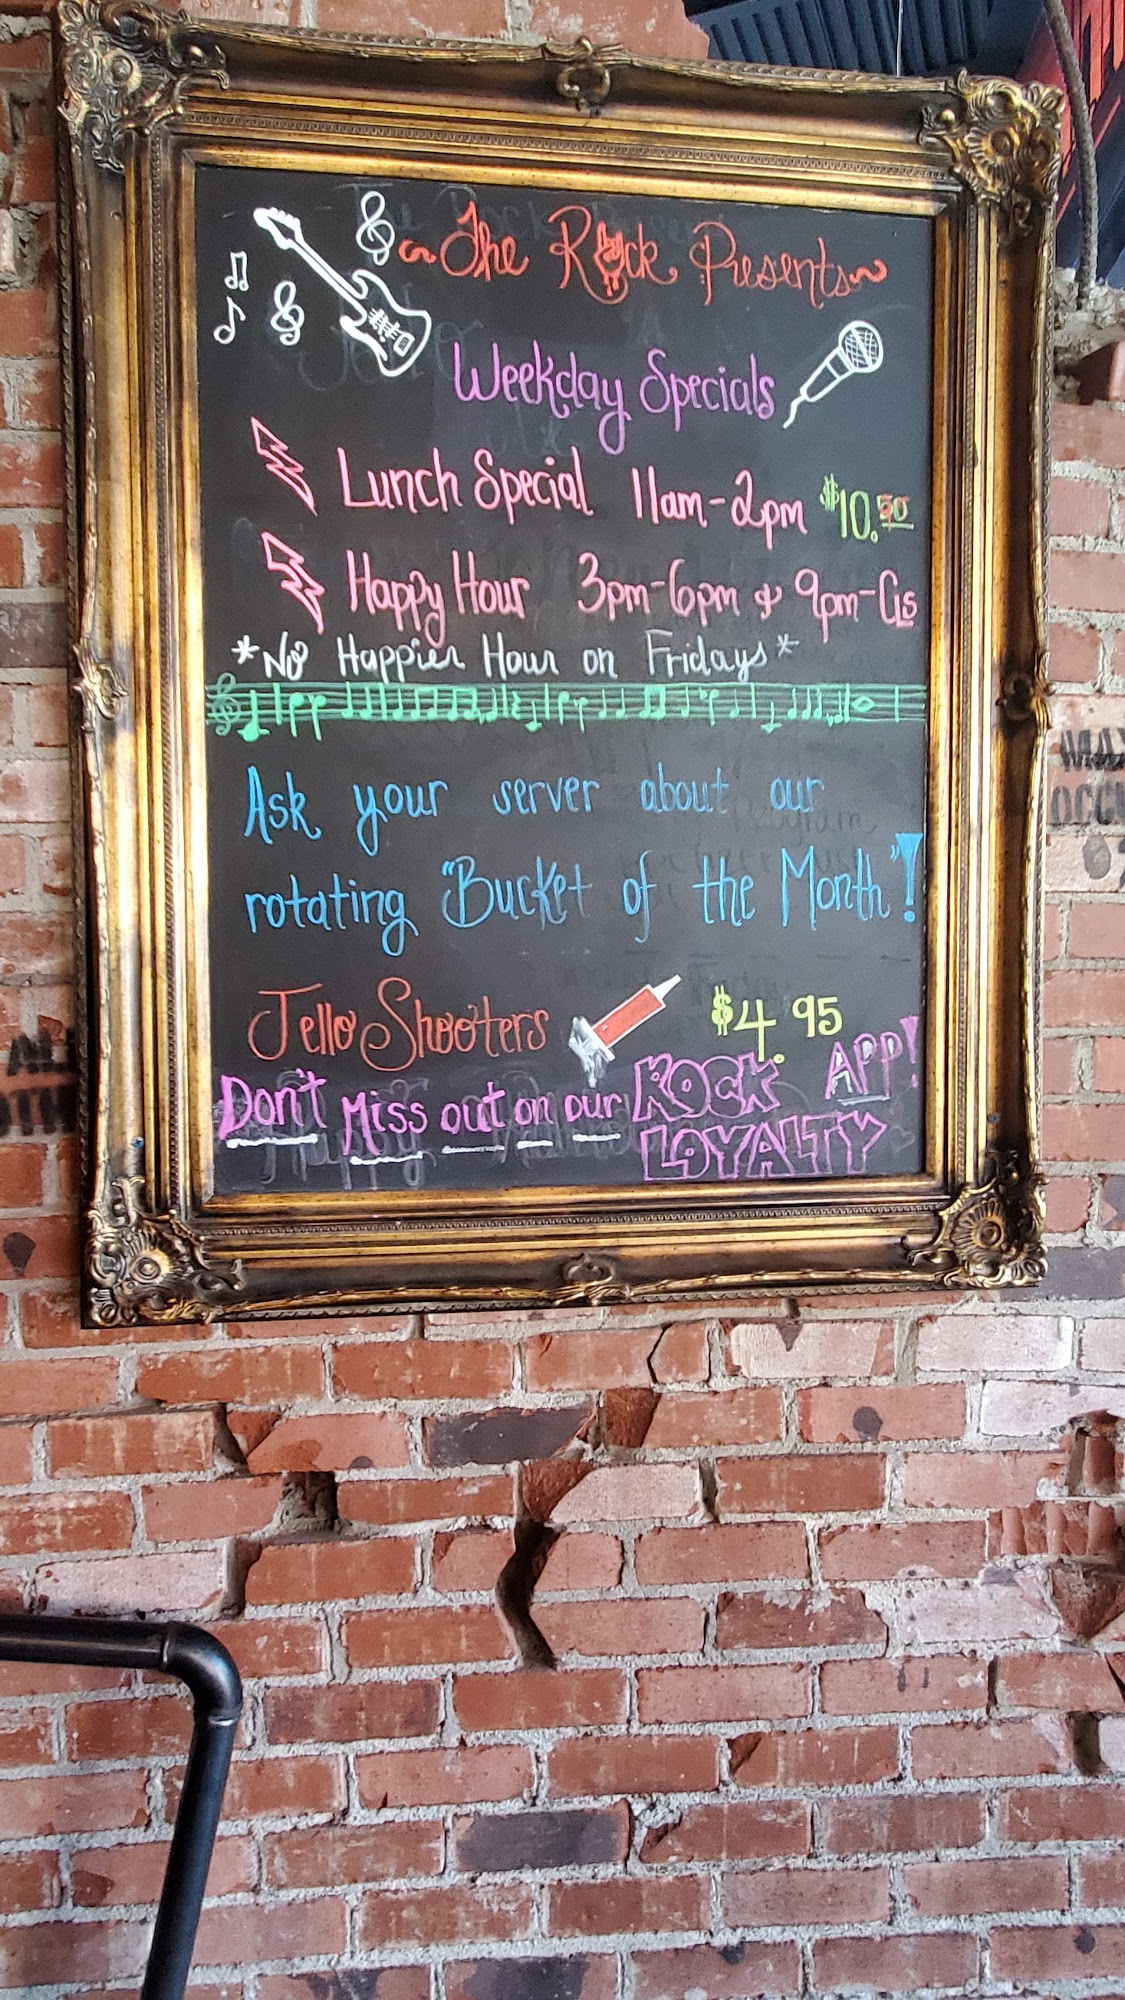 ~The Rock Presents~
Weekday Specials
Lunch Special 11am-2pm $10.50
Happy Hour 3pm-6pm & 9pm-Cls
*No Happier Hour on Fridays*
Ask your server about our
rotating "Bucket of the Month"!
Jello Shooters $4.95
Don't Miss out on our ROCK LOYALTY APP!